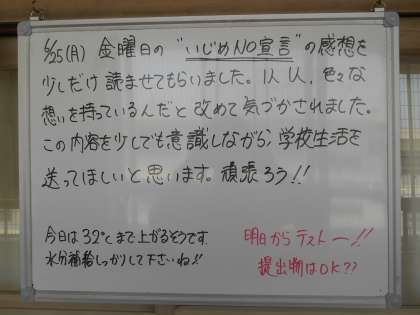 6/25(月) 金曜日の"いじめNO宣言"の感想を
少しだけ読ませてもらいました。1人1人、色々な
想いを持っているんだと改めて気づかされました。
この内容を少しでも意識しながら、学校生活を
送ってほしいと思います。頑張ろう!!
今日は32℃まで上がるそうです。
水分補給しっかりして下さいね!!
明日からテストー!!
提出物はOK??